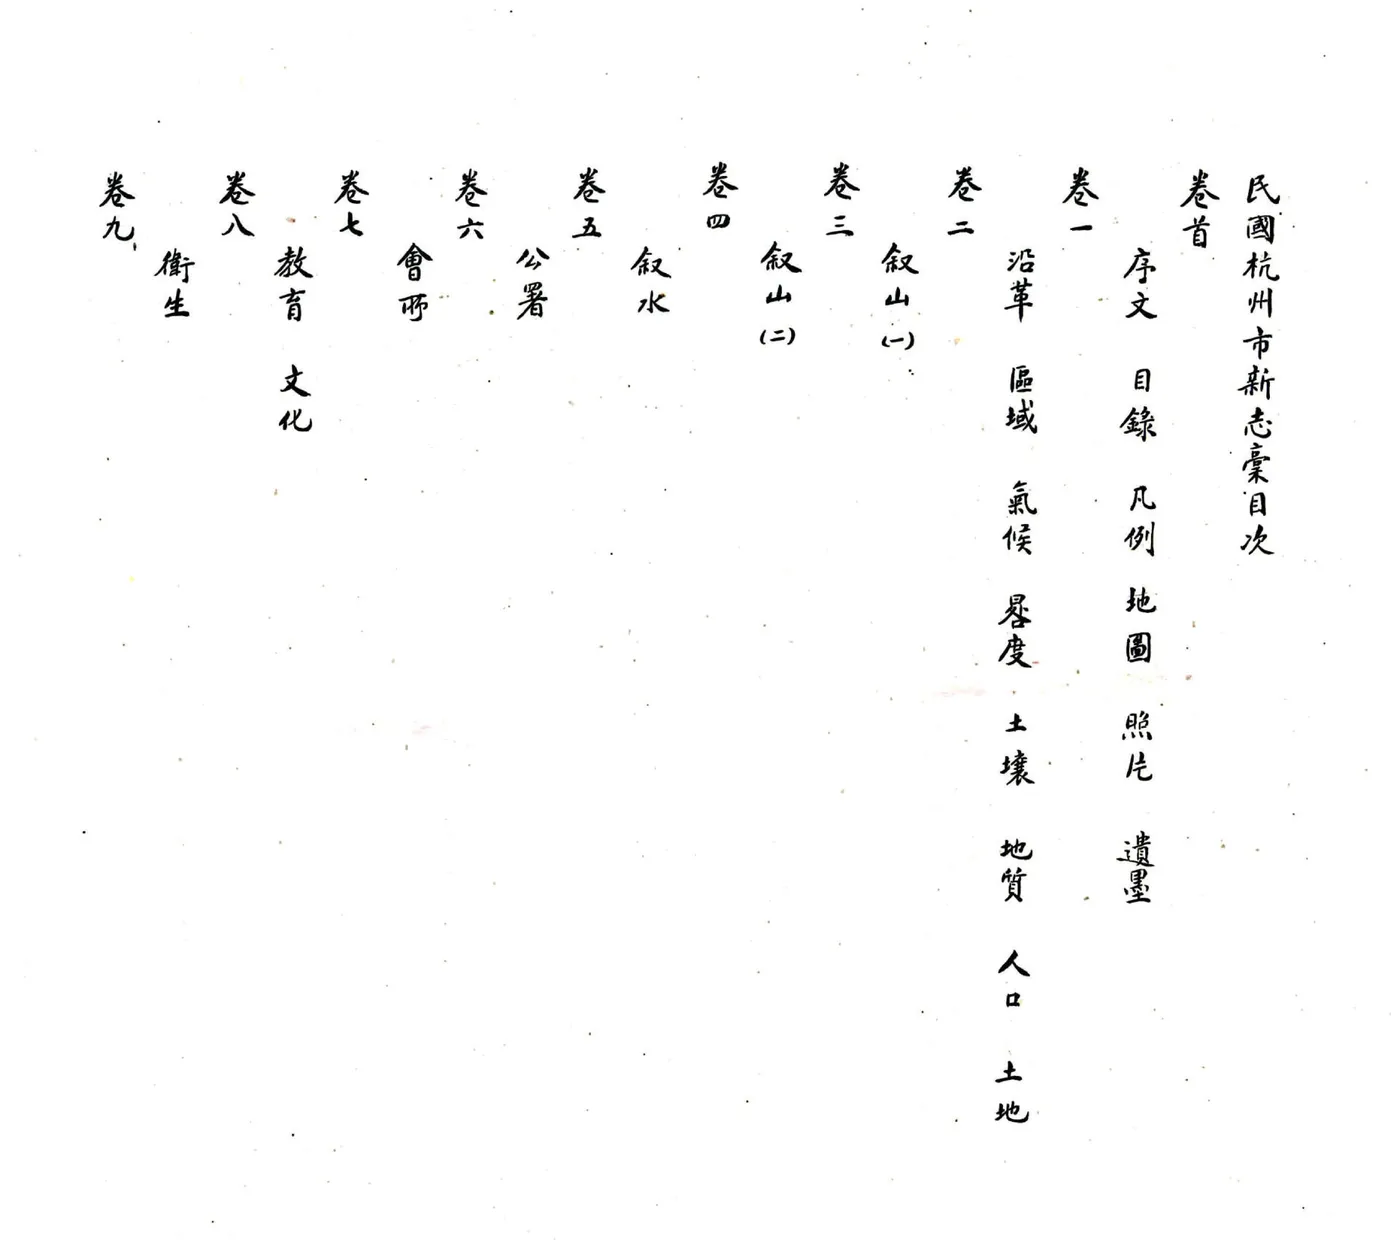 民國杭州市新志稾目次
卷首
序文 目錄 凡例 地圖 照片 遺墨
卷一
沿革 區域 氣候 晷度 土壤 地質 人口 土地
卷二
叙山(一)
卷三
叙山(二)
卷四
叙水
卷五
公署
卷六
會所
卷七
教育 文化
卷八
衛生
卷九